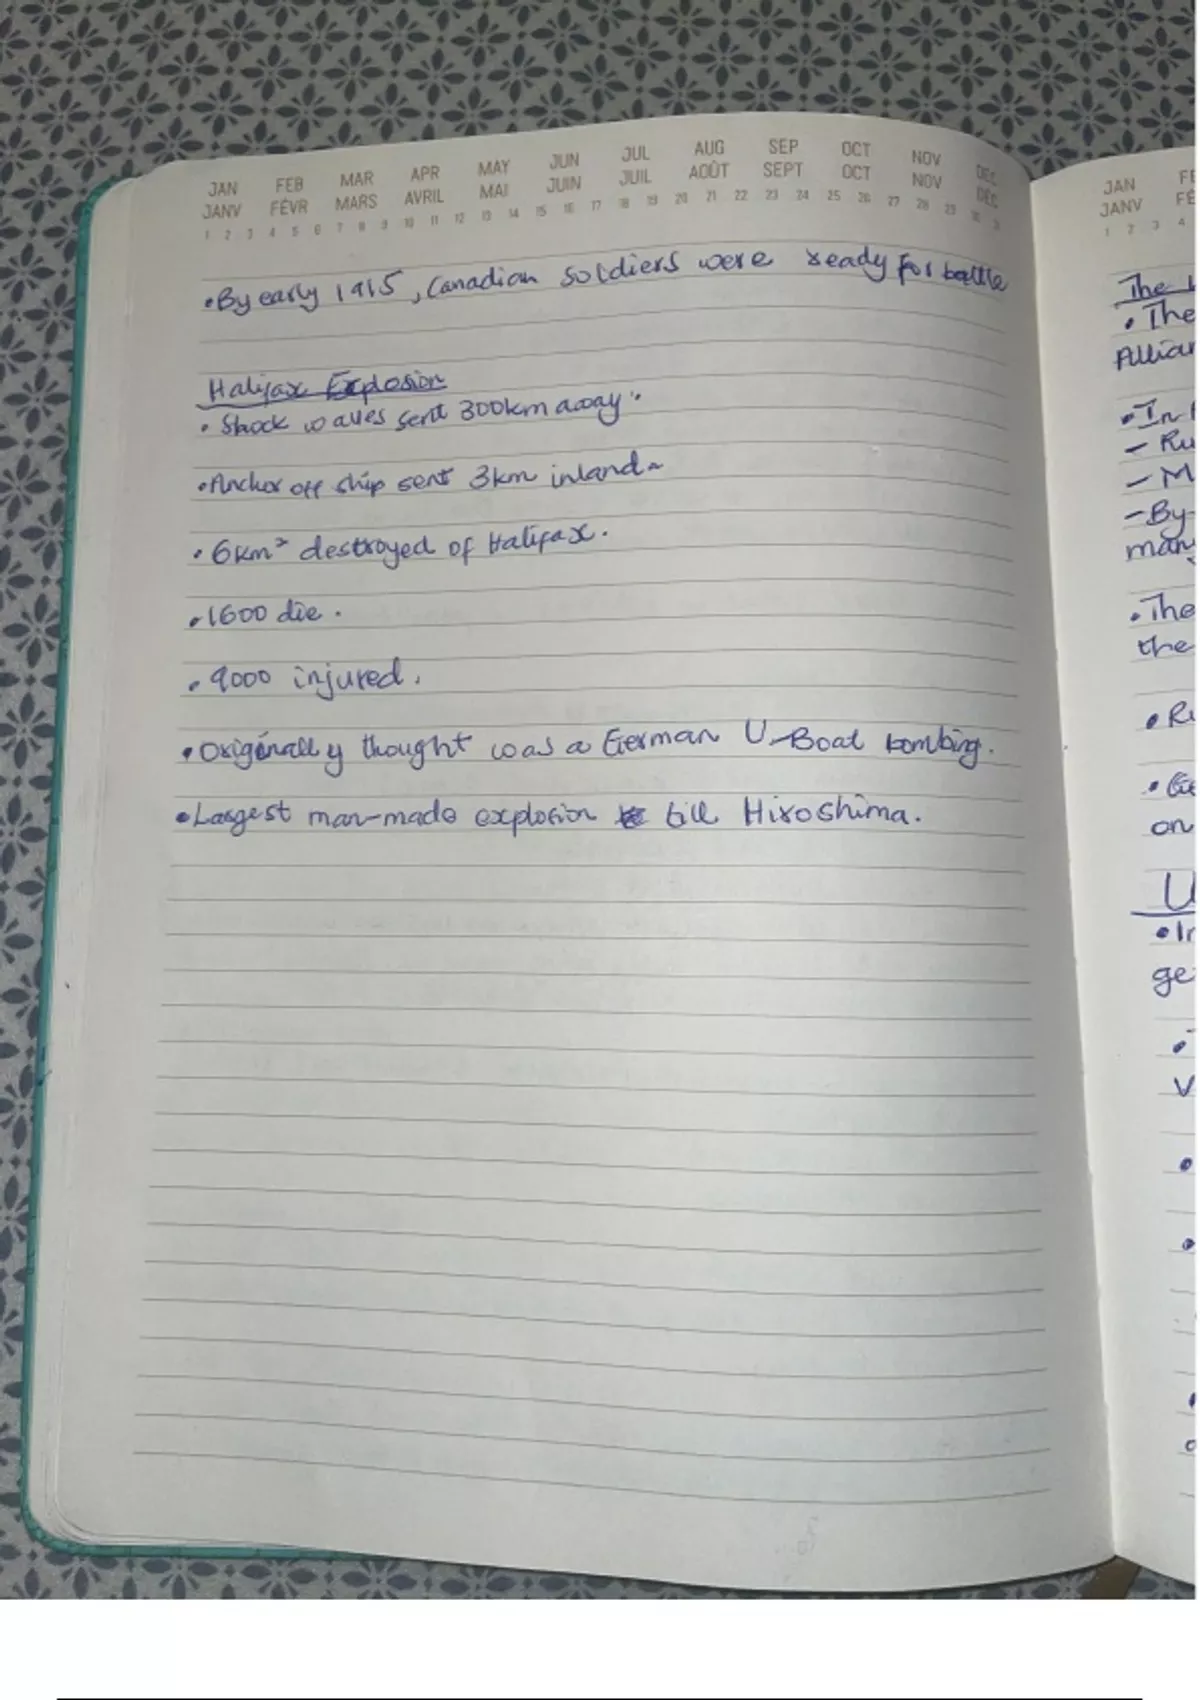 JAN FEB MAR APR MAY JUN JUL AUG SEP OCT NOV DEC
JANV FÉVR MARS AVRIL MAI JUIN JUIL AOÛT SEPT OCT NOV DÉC
1 2 3 4 5 6 7 8 9 10 11 12 13 14 15 16 17 18 19 20 21 22 23 24 25 26 27 28 29 30 31
• By early 1915, Canadian soldiers were ready for battle
Halifax Explosion
• Shock waves sent 300km away.
• Anchor off ship sent 3km inland
• 6km² destroyed of Halifax.
• 1600 die.
• 9000 injured.
• Originally thought was a German U-Boat bombing.
• Largest man-made explosion till Hiroshima.
JAN FE
JANV FÉ
1 2 3 4
The
• The
Allian
• In
- Ru
- M
- By
man
• The
the
• Ru
•
on
U
• In
ge
•
V